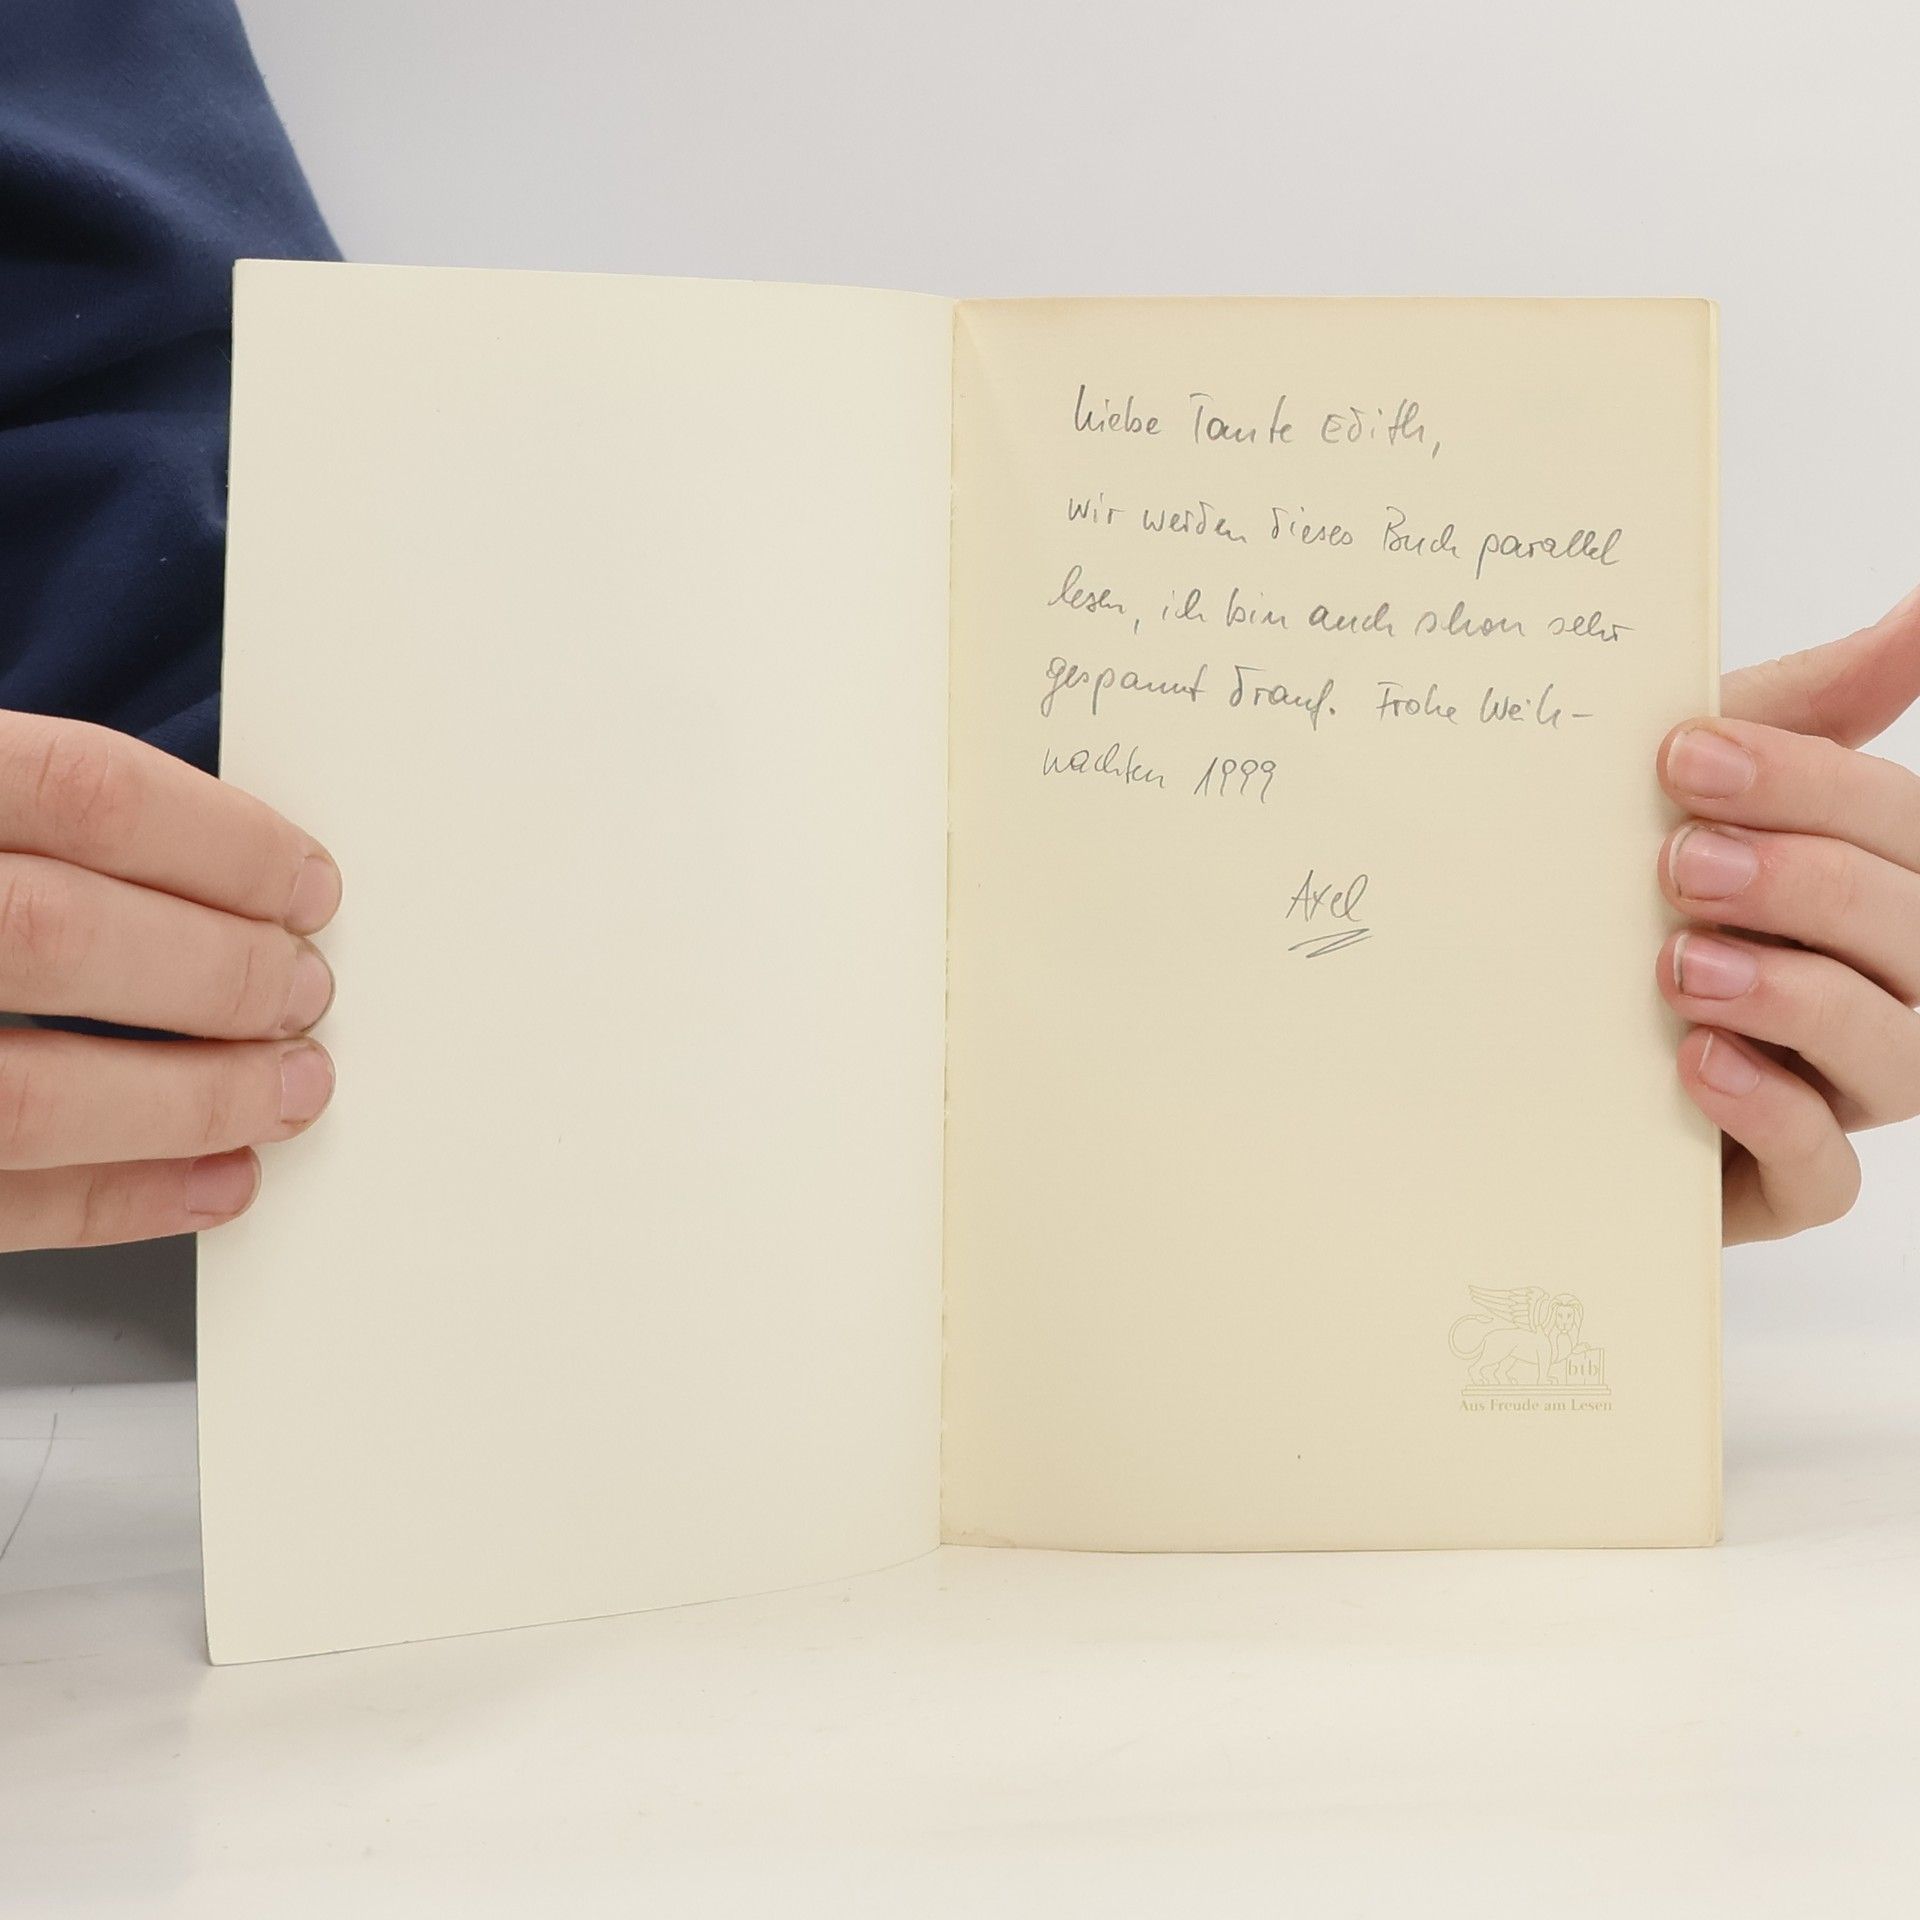 Liebe Tante Edith,
wir werden dieses Buch parallel
lesen, ich bin auch schon sehr
gespannt drauf. Frohe Weih-
nachten 1999
Axel
btb
Aus Freude am Lesen